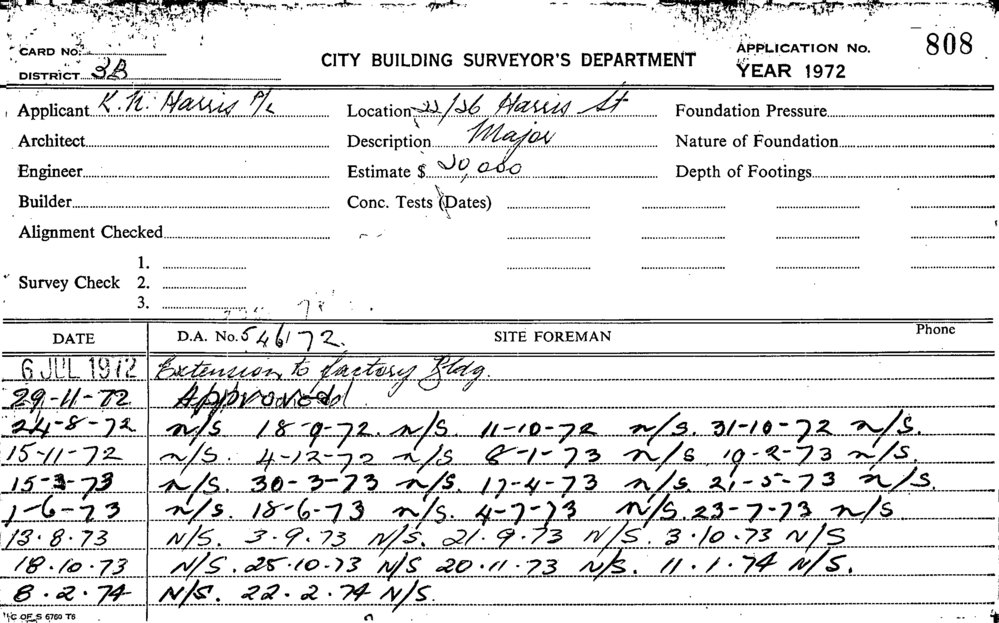 CARD No.
DISTRICT 3B
CITY BUILDING SURVEYOR'S DEPARTMENT
APPLICATION No. 808
YEAR 1972
Applicant K. N. Harris P/L
Location 22/26 Harris St
Foundation Pressure
Architect
Description Major
Nature of Foundation
Engineer
Estimate $ 20,000
Depth of Footings
Builder
Conc. Tests (Dates)
Alignment Checked
Survey Check
1.
2.
3.
DATE
D.A. No. 546/72.
SITE FOREMAN
Phone
6 JUL 1972 Extension to factory Bldg.
29-11-72 Approved
24-8-72 n/S. 18-9-72. n/S. 11-10-72 n/S. 31-10-72 n/S.
15-11-72 n/S. 4-12-72 n/S 8-1-73 n/S 19-2-73 n/S.
15-3-73 n/S. 30-3-73 n/S. 17-4-73 n/S. 21-5-73 n/S.
1-6-73 n/S. 18-6-73 n/S. 4-7-73 N/S. 23-7-73 n/S
13.8.73 N/S. 3.9.73 N/S. 21.9.73 N/S. 3.10.73 N/S
18.10.73 N/S. 25.10.73 N/S 20.11.73 N/S. 11.1.74 N/S.
8.2.74 N/S. 22.2.74 N/S.
C OF S 6760 T8